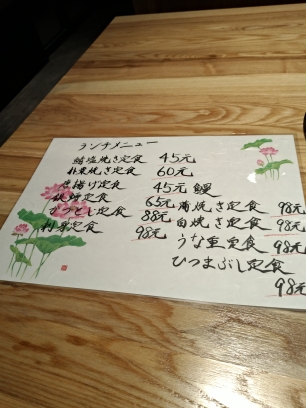 ランチメニュー
鯖塩焼き定食 45元
朴葉焼き定食 60元
唐揚げ定食 45元
定食 65元
定食 88元
刺身定食 98元
鰻
蒲焼き定食 98元
白焼き定食 98元
うな重定食 98元
ひつまぶし定食
98元